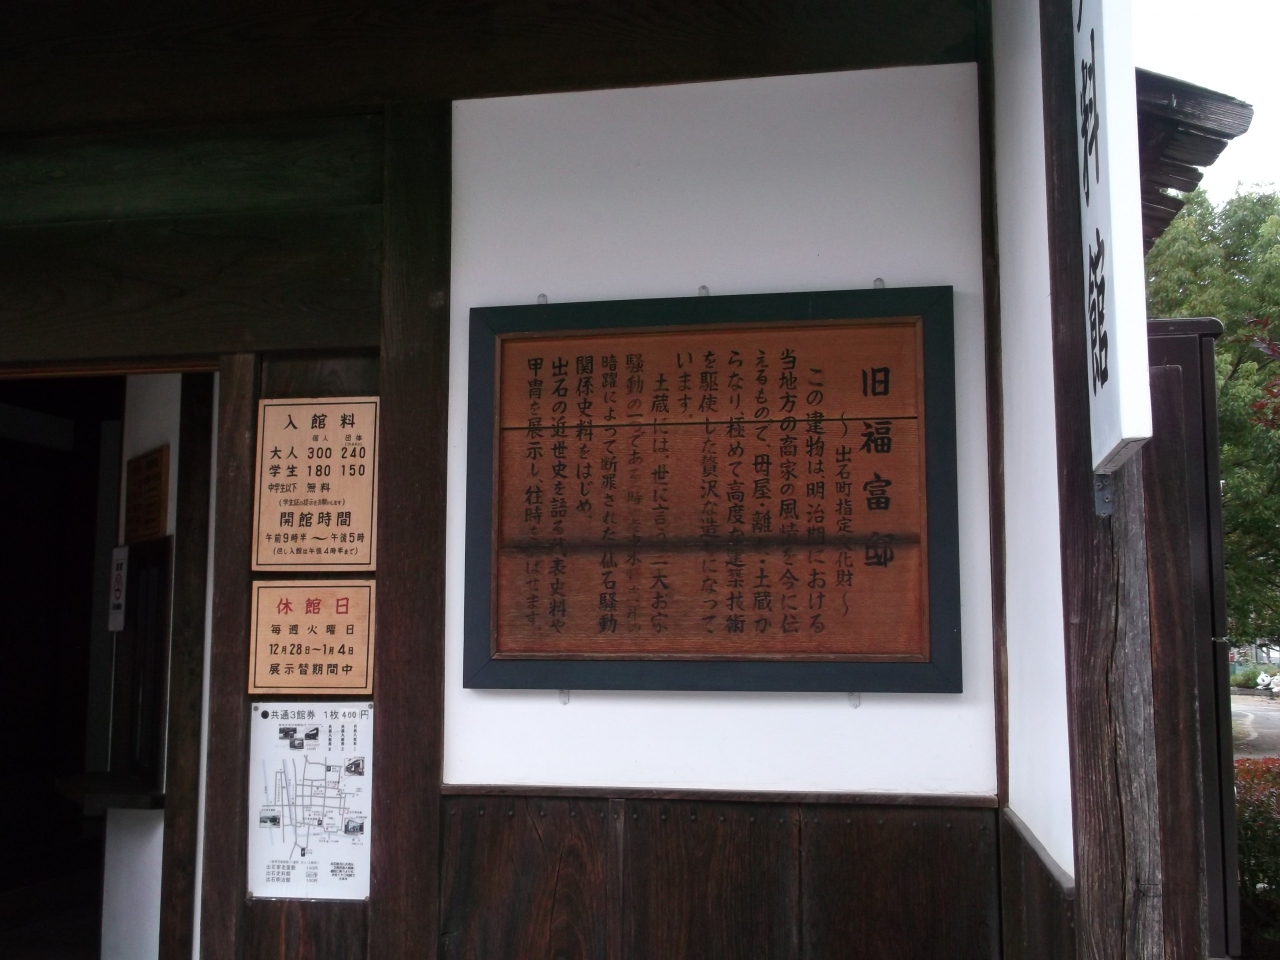 料館
旧福富邸
～出石町指定文化財～
この建物は明治期における
当地方の商家の風情を今に伝
えるもので、母屋・離れ・土蔵か
らなり、極めて高度な建築技術
を駆使した贅沢な造りになって
います。
土蔵には、世に言う三大お家
騒動の一つである
暗躍によって断罪された仙石騒動
関係史料をはじめ、
出石の近世史を語る代表史料や
甲冑を展示し、往時を偲ばせます。
入館料
個人 団体
大人 300 240
学生 180 150
中学生以下 無料
(学生証の提示をお願いします)
開館時間
午前9時半～午後5時
(但し入館は午後4時半まで)
休館日
毎週火曜日
12月28日～1月4日
展示替期間中
●共通3館券 1枚400円
出石家老屋敷
出石史料館
出石明治館